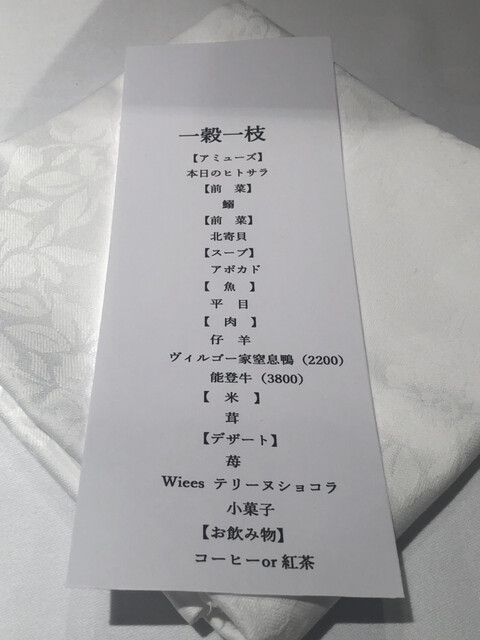 一穀一枝
【アミューズ】
本日のヒトサラ
【前　菜】
鰯
【前　菜】
北寄貝
【スープ】
アボカド
【　魚　】
平　目
【　肉　】
仔　羊
ヴィルゴー家窒息鴨（2200）
能登牛（3800）
【　米　】
茸
【デザート】
苺
Wiees テリーヌショコラ
小菓子
【お飲み物】
コーヒーor 紅茶